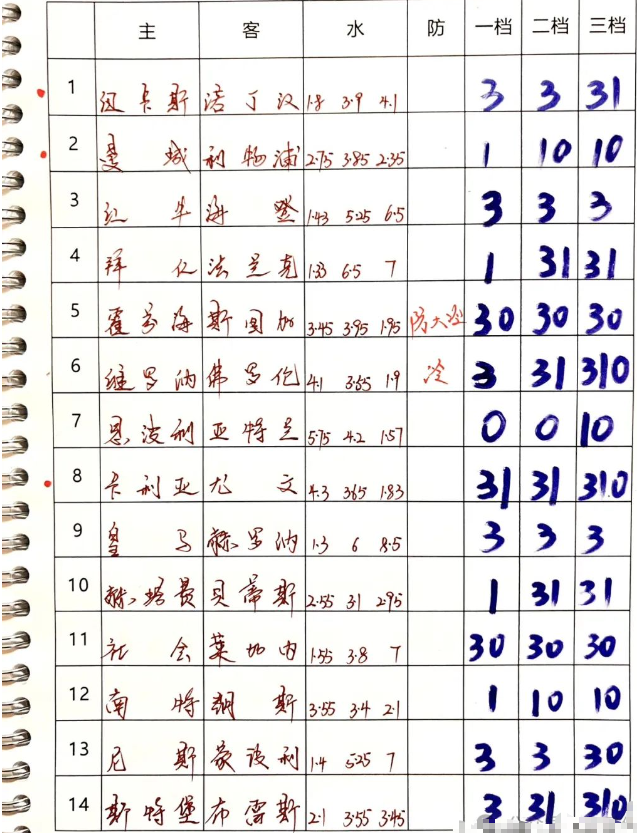 主 客 水 防 一档 二档 三档
1 纽卡斯 诺丁汉 1.8 3.9 4.1 3 3 31
2 曼城 利物浦 2.75 3.85 2.35 1 10 10
3 红牛 海登 1.43 5.25 6.5 3 3 3
4 拜仁 法兰克 1.33 6.5 7 1 31 31
5 霍芬海 斯图加 3.45 3.95 1.95 防大 30 30 30
6 维罗纳 佛罗伦 4.1 3.55 1.9 冷 3 31 310
7 恩波利 亚特兰 5.75 4.2 1.57 0 0 10
8 卡利亚 尤文 4.3 3.65 1.83 31 31 310
9 皇马 赫罗纳 1.3 6 8.5 3 3 3
10 赫塔费 贝蒂斯 2.55 3.1 2.95 1 31 31
11 社会 莱加内 1.55 3.8 7 30 30 30
12 南特 朗斯 3.55 3.4 2.1 1 10 10
13 尼斯 蒙彼利 1.4 5.25 7 3 3 30
14 斯特堡 布雷斯 2.1 3.55 3.45 3 31 310